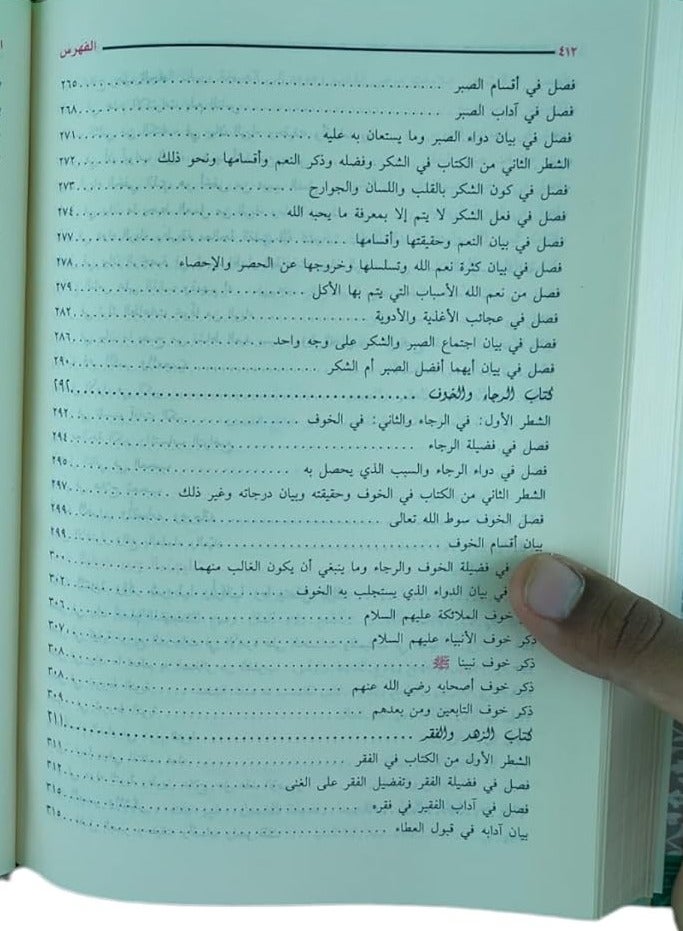 ٤١٢ الفهرس
فصل في أقسام الصبر ٢٦٥
فصل في آداب الصبر ٢٦٨
فصل في بيان دواء الصبر وما يستعان به عليه ٢٧١
الشطر الثاني من الكتاب في الشكر وفضله وذكر النعم وأقسامها ونحو ذلك ٢٧٢
فصل في كون الشكر بالقلب واللسان والجوارح ٢٧٣
فصل في فعل الشكر لا يتم إلا بمعرفة ما يحبه الله ٢٧٤
فصل في بيان النعم وحقيقتها وأقسامها ٢٧٧
فصل في بيان كثرة نعم الله وتسلسلها وخروجها عن الحصر والإحصاء ٢٧٨
فصل من نعم الله الأسباب التي يتم بها الأكل ٢٧٩
فصل في عجائب الأغذية والأدوية ٢٨٢
فصل في بيان اجتماع الصبر والشكر على وجه واحد ٢٨٦
فصل في بيان أيهما أفضل الصبر أم الشكر ٢٩٠
كتاب الرجاء والخوف ٢٩٢
الشطر الأول: في الرجاء والثاني: في الخوف ٢٩٢
فصل في فضيلة الرجاء ٢٩٤
فصل في دواء الرجاء والسبب الذي يحصل به ٢٩٥
الشطر الثاني من الكتاب في الخوف وحقيقته وبيان درجاته وغير ذلك ٢٩٧
فصل الخوف سوط الله تعالى ٢٩٩
بيان أقسام الخوف ٢٩٩
في فضيلة الخوف والرجاء وما ينبغي أن يكون الغالب منهما ٣٠٠
في بيان الدواء الذي يستجلب به الخوف ٣٠٢
خوف الملائكة عليهم السلام ٣٠٦
ذكر خوف الأنبياء عليهم السلام ٣٠٧
ذكر خوف نبينا ﷺ ٣٠٨
ذكر خوف أصحابه رضي الله عنهم ٣٠٨
ذكر خوف التابعين ومن بعدهم ٣٠٩
كتاب الزهد والفقر ٢١١
الشطر الأول من الكتاب في الفقر ٣١١
فصل في فضيلة الفقر وتفضيل الفقر على الغنى ٣١٢
فصل في آداب الفقير في فقره ٣١٥
بيان آدابه في قبول العطاء ٣١٥